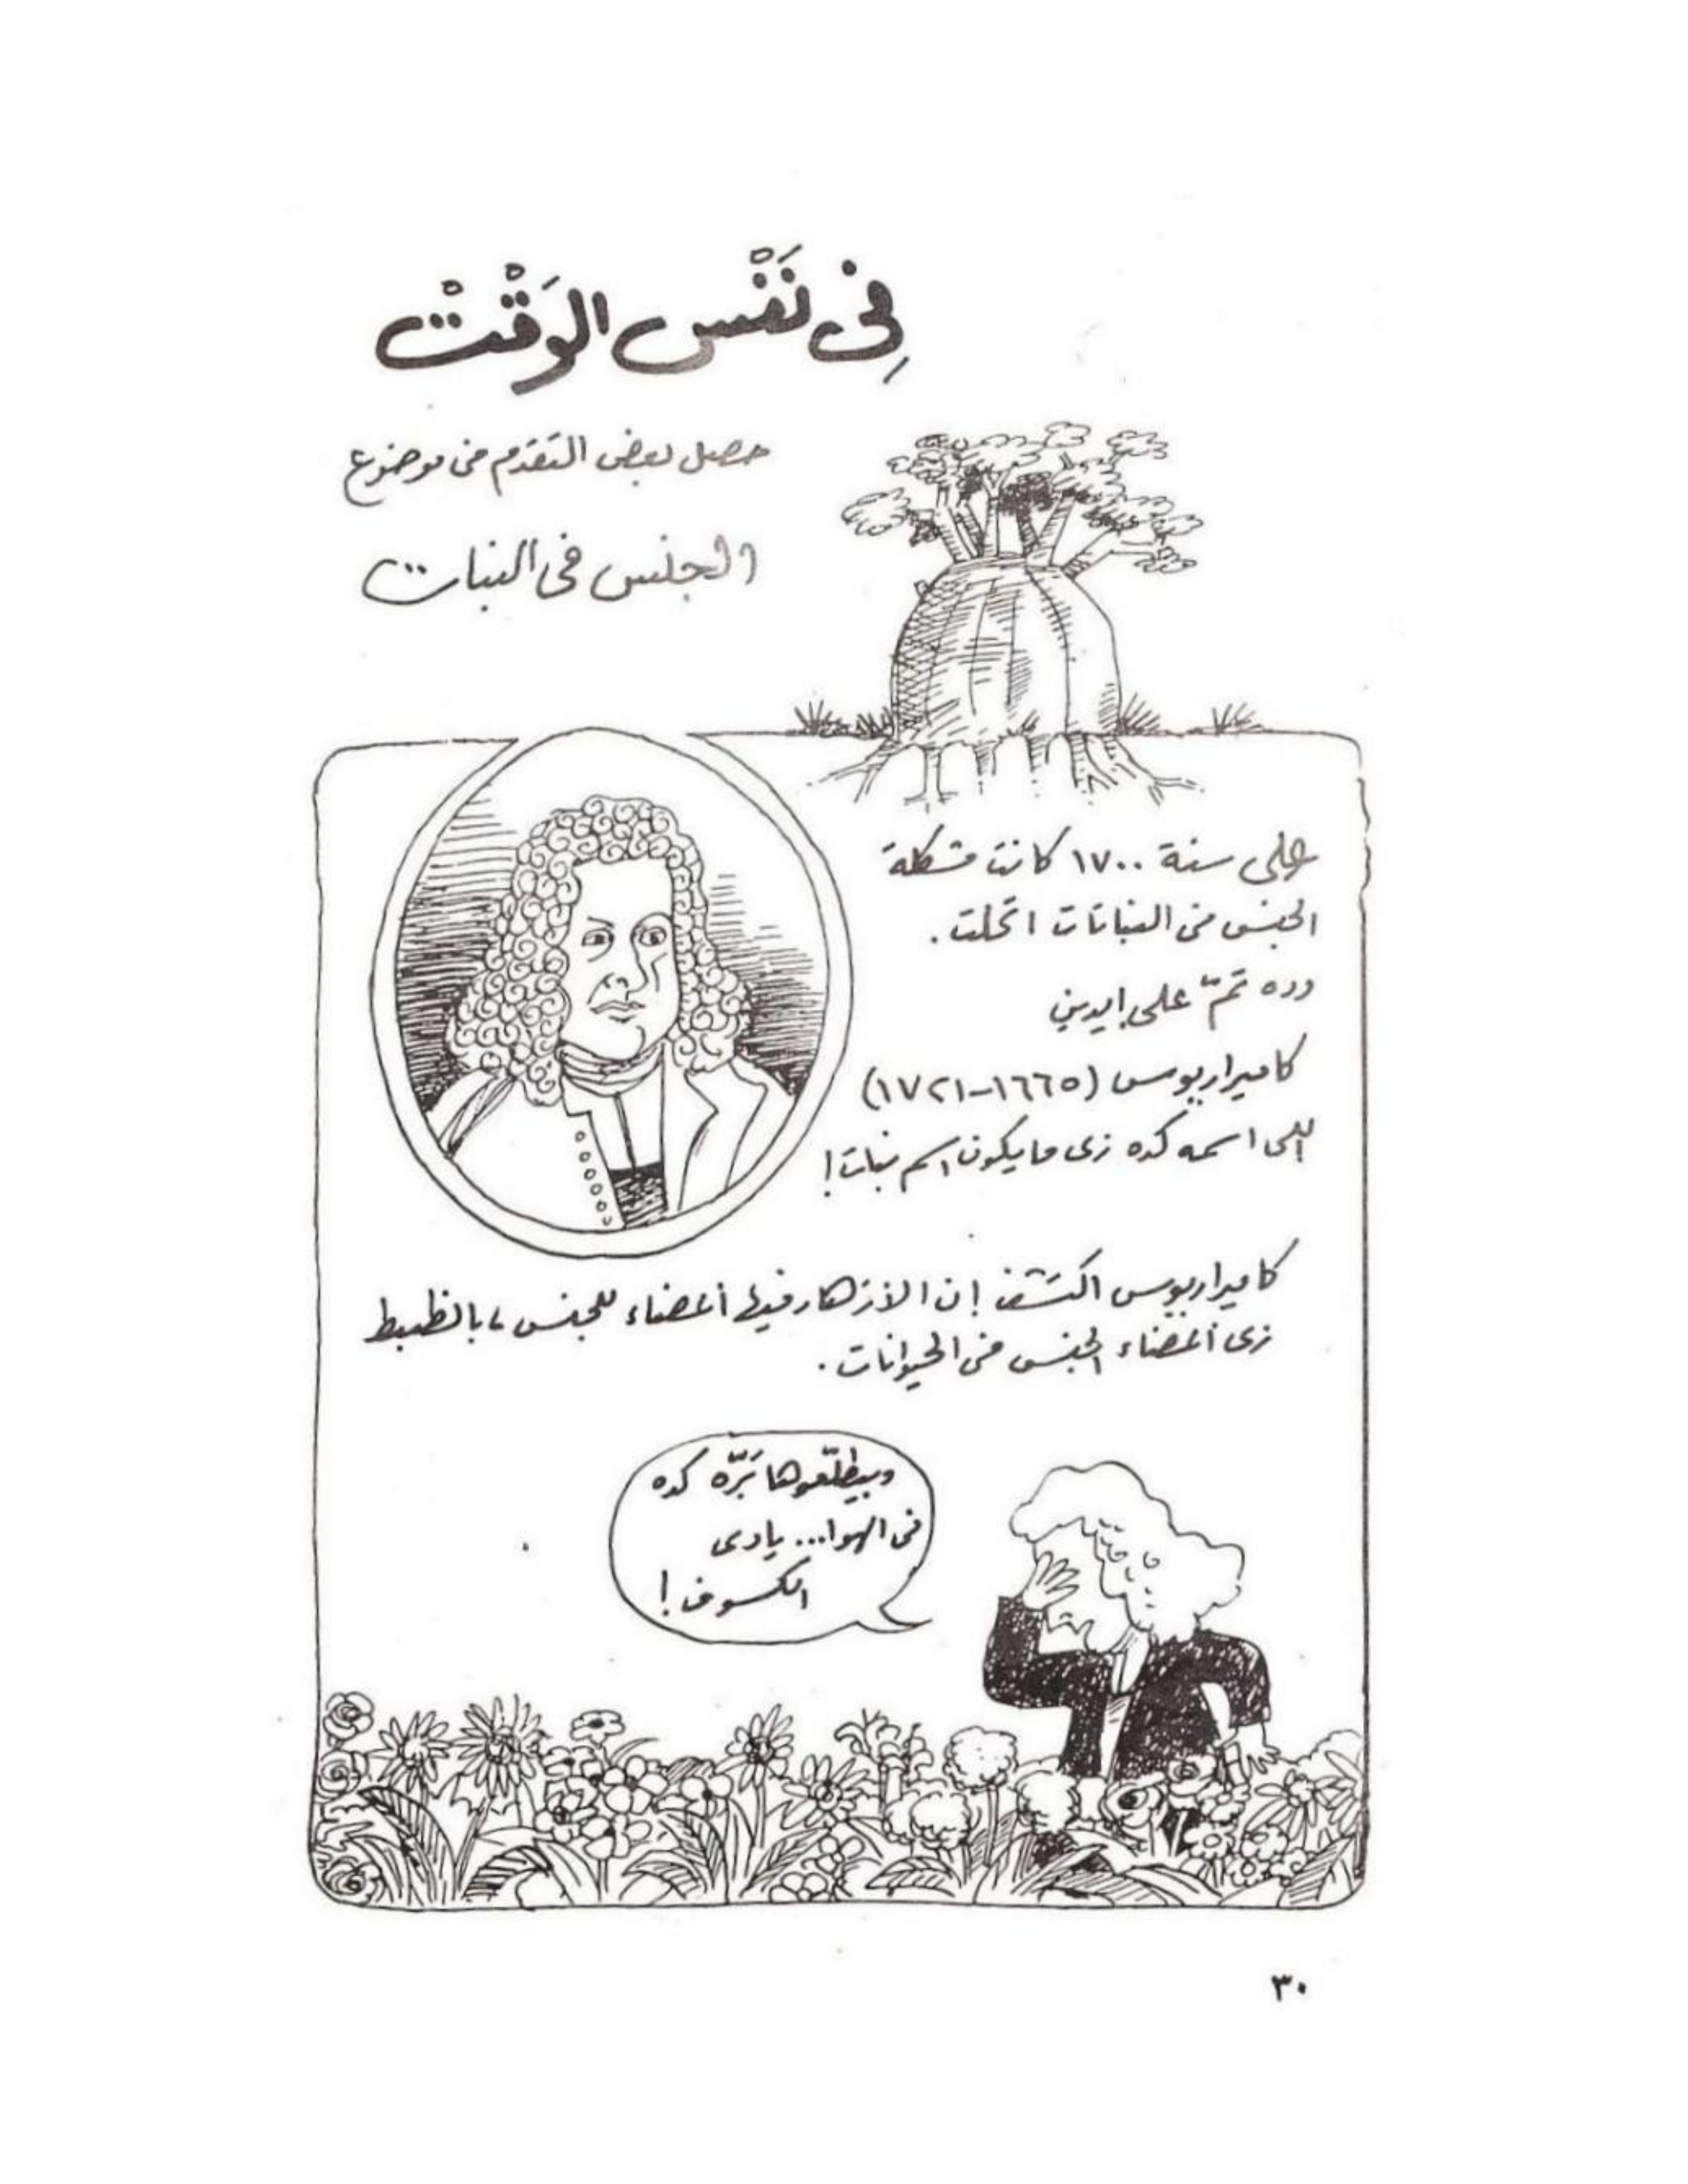 فِى نَفْس الوَقْتْ
حصل بعض التقدم فى موضوع
الجنس فى النبات
على سنة ١٧٠٠ كانت مشكلة
الجنس فى النباتات اتحلت.
وده تمّ على إيدين
كاميراريوس (١٦٦٥-١٧٢١)
اللى اسمه كده زى ما يكون اسم نبات!
كاميراريوس اكتشف إن الأزهار فيها أعضاء للجنس، بالظبط
زى أعضاء الجنس فى الحيوانات.
وبيطلّعوها بَرّه كده
فى الهوا... يادى
الكسوف!
٣٠